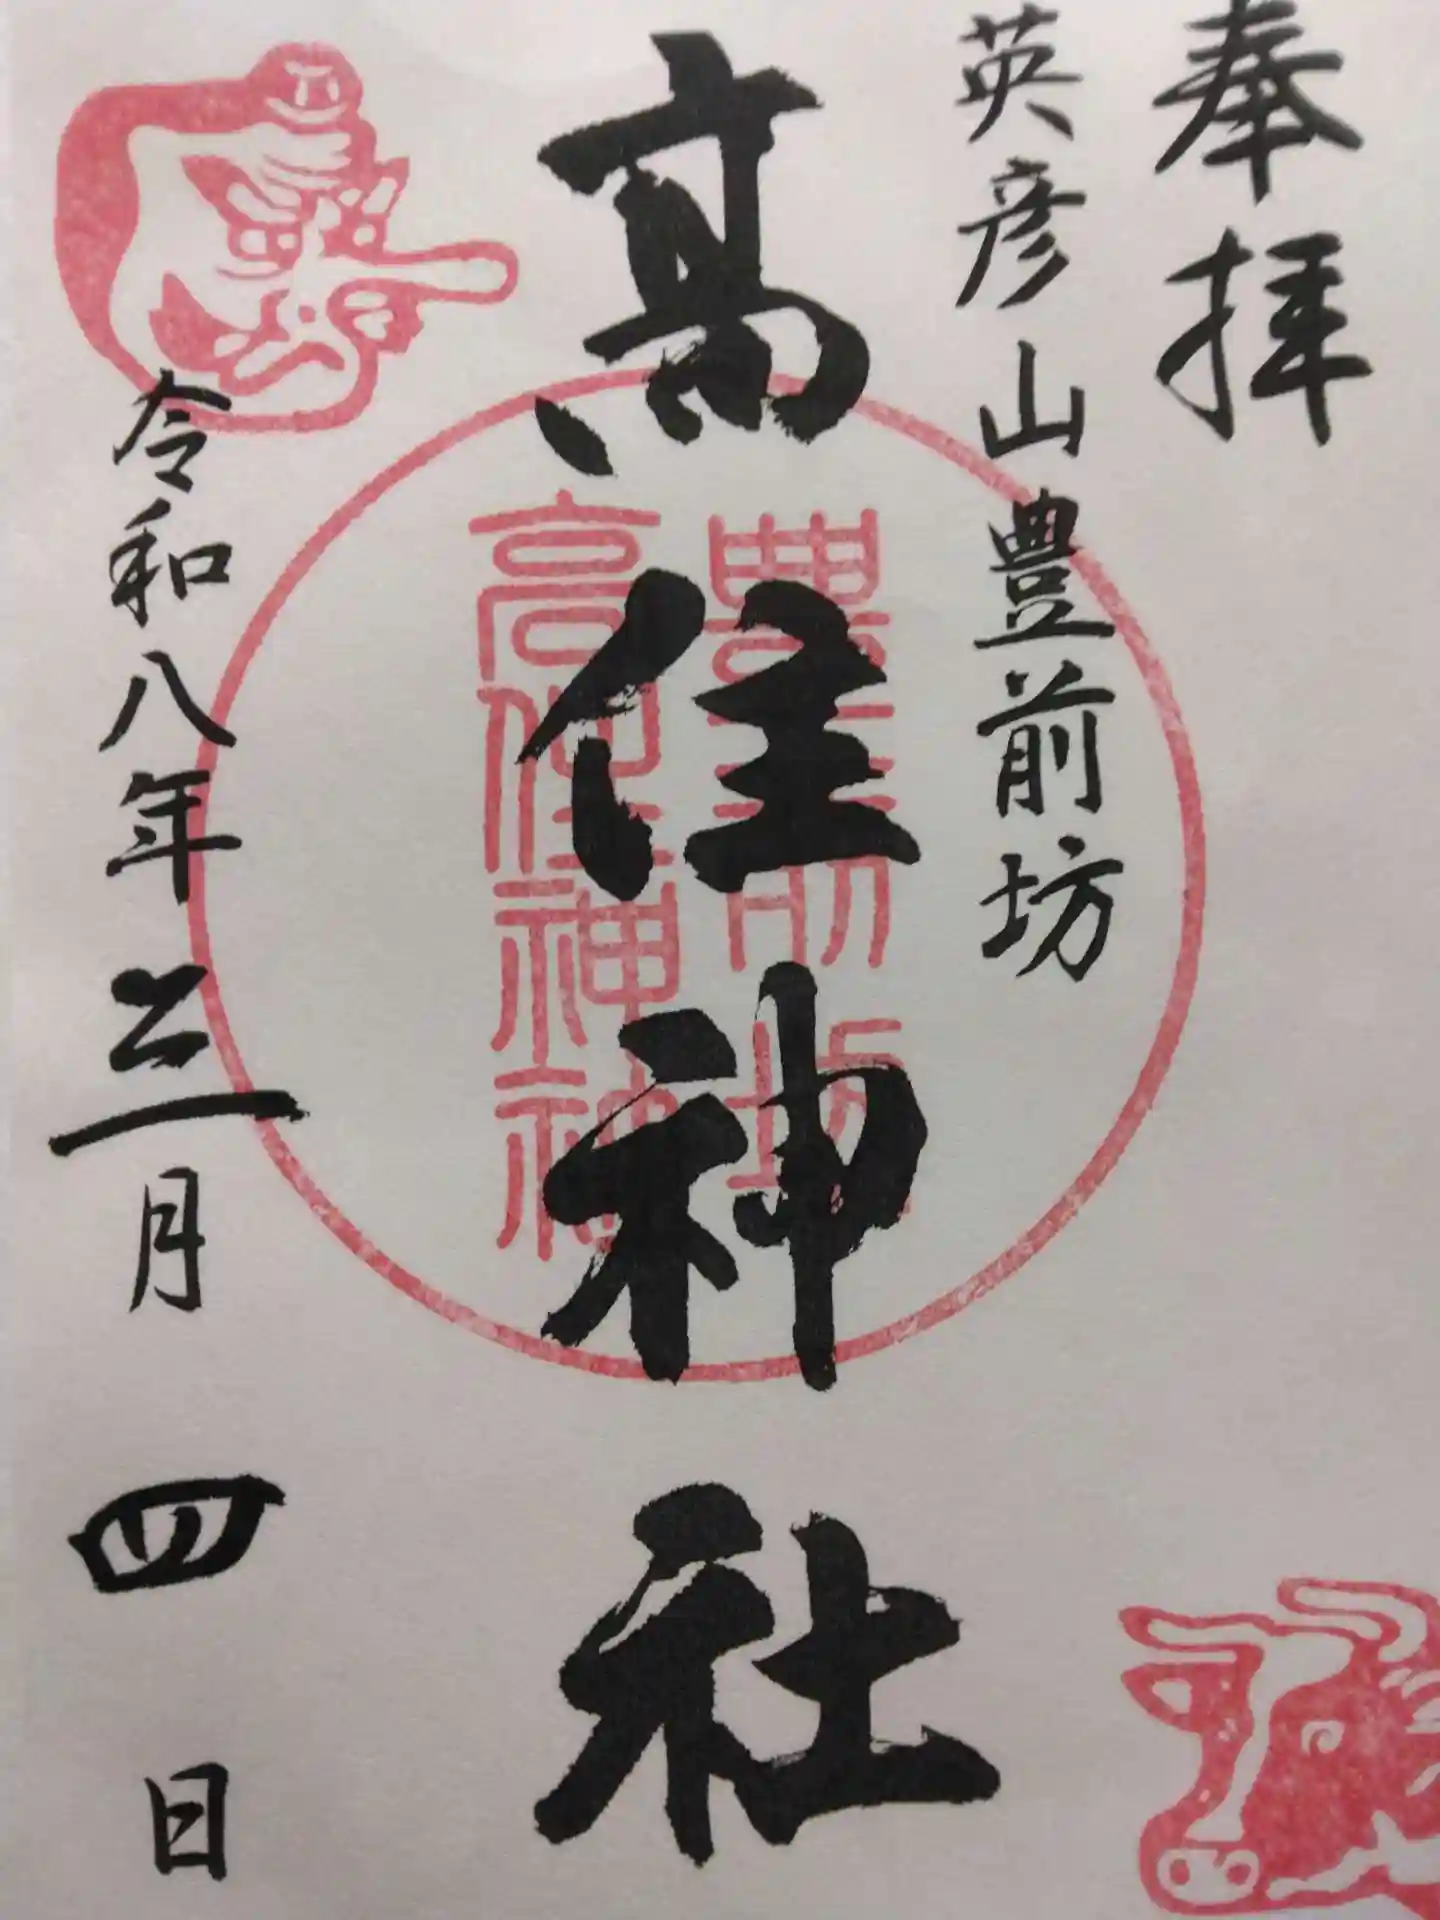 奉拝
英彦山豊前坊
高住神社
令和八年三月四日
豊前坊
高住神社